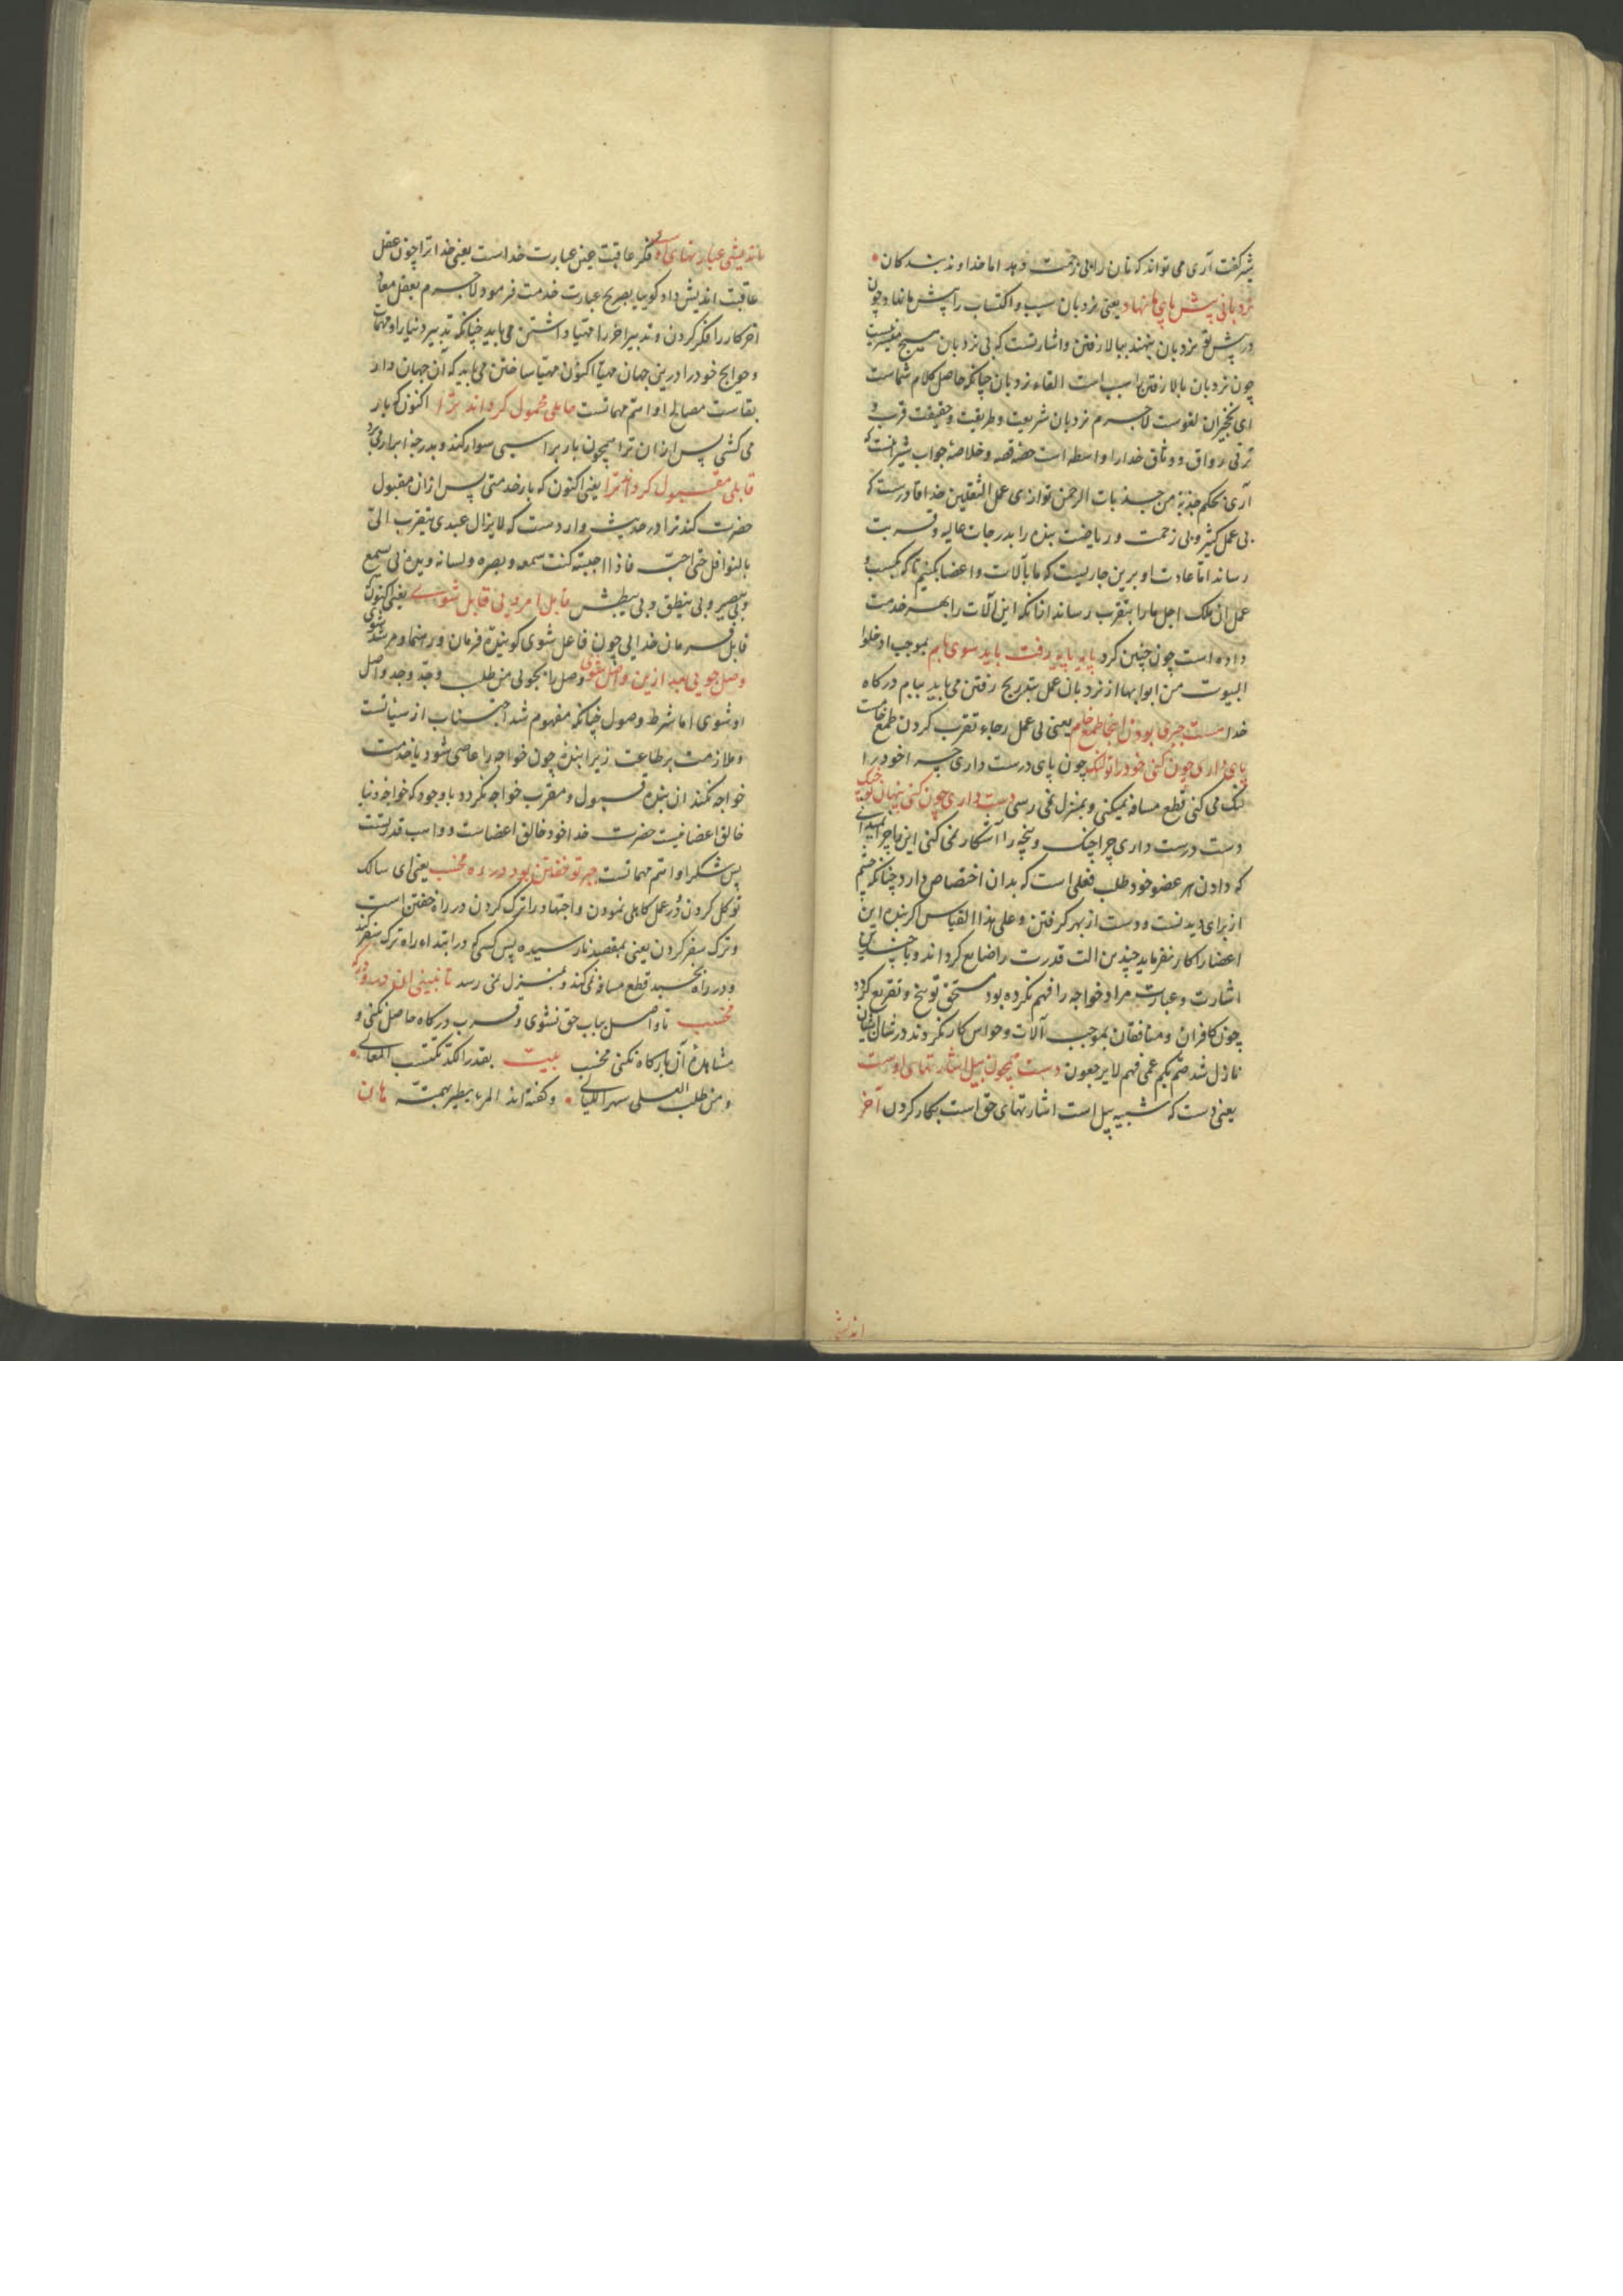 شیر گفت آری می تواند که نان را بی زحمت دهد اما خداوند بندگان
نردبانی پیش پای ما نهاد یعنی نردبان سبب و اکتساب را پیش ما نهاد و چون
در پیش تو نردبان بنهند ببالا رفتن و اشارتست که بی نردبان میسر نیست
چون نردبان بالا رفتن را سبب است القاء نردبان چنانکه حاصل کلام شماست
ای نخچیران لغوست لاجرم نردبان شریعت و طریقت و حقیقت قرب و
ترقی رواق و وثاق خدا را واسطه است حصه قصه و خلاصه جواب شیر آنست که
آری بحکم جذبة من جذبات الرحمن توازی عمل الثقلین خدا قادرست که
بی عمل کثیر و بی زحمت و ریاضت بنده را بدرجات عالیه و قربت
رساند اما عادت او برین جاریست که ما بآلات و اعضا بکنیم تا که بکسب و
عمل آن ملک اجل ما را بتقرب رساند از آنکه این آلات را بهر خدمت
داده است چون چنین کرد پایه پایه رفت باید سوی بام بموجب ادخلوا
البیوت من ابوابها از نردبان عمل بتدریج رفتن می باید ببام درگاه
خدا هست جبری بودن اینجا طمع خام یعنی بی عمل رجاء تقرب کردن طمع خامست
پای داری چون کنی خود را تو لنگ چون پای درست داری چرا خود را
لنگ می کنی قطع مسافه نمیکنی و بمنزل نمی رسی دست داری چون کنی پنهان تو چنگ
دست درست داری چرا چنگ و پنجه را آشکار نمی کنی این ماجرا
که دادن هر عضو خود طلب فعلی است که بدان اختصاص دارد چنانکه چشم
از برای دیدنست و دست از بهر گرفتن و علی هذا القیاس اگر بنده این
اعضا را کار نفرماید چندین الت قدرت را ضایع کرد اند و با چندین
اشارت و عبارت مراد خواجه را فهم نکرده بود مستحق توبیخ و تقریع گردد
چون کافران و منافقان بموجب آلات و حواس کار نکردند در شان ایشان
نازل شد صم بکم عمی فهم لا یرجعون دست همچون بیل اشارتهای اوست
یعنی دست که شبیه بیل است اشارتهای حق است بکار کردن آخر
اندیشی
اندیشی عبارتهای اوست فکر عاقبت عین عبارت خداست یعنی خدا ترا چون عقل
عاقبت اندیش داد گوییا بصریح عبارت خدمت فرمود لاجرم بعقل معاد
آخر کار را فکر کردن و تدبیر آخر را مهیا داشتن می باید چنانکه تدبیر دنیا را و مهمات
و حوایج خود را درین جهان مهیا اکنون مهیا ساختن می باید که آن جهان دار
بقاست مصالح او اتم مهماتست حاملی محمول گرداند ترا اکنون که بار
می کشی پس از آن ترا همچون بار براسبی سوار کند و بدرجه ابرار می برد
قابلی مقبول گرداند ترا یعنی اکنون که بار خدمتی پس از آن مقبول
حضرت کند ترا در حدیث وارد ست که لا یزال عبدی یتقرب الی
بالنوافل حتی احبه فاذا احببته کنت سمعه و بصره و لسانه و یده بی یسمع
و بی یبصر و بی ینطق و بی یبطش قابل امر ویی قابل شوی یعنی اکنون
قابل فرمان خدایی چون فاعل شوی گوینده فرمان و رهنما و مرشد شوی
وصل جویی بعد ازین واصل شوی وصل را بجویی من طلب و جد وجد واصل
او شوی اما شرط وصول چنانکه مفهوم شد اجتناب از سیئاتست
و ملازمت بر طاعت زیرا بنده چون خواجه را عاصی شود یا خدمت
خواجه نکند آن بنده قبول و مقرب خواجه نگردد باوجود که خواجه دنیا
خالق اعضا نیست حضرت خدا خود خالق اعضاست و واهب قدرتست
پس شکر او اتم مهماتست جبر تو خفتن بود در ره مخسب یعنی ای سالک
توکل کردن و در عمل کاهلی نمودن و اجتهاد را ترک کردن در راه خفتن است
و ترک سفر کردن یعنی بمقصد نارسیده پس کسی که در ابتداء راه ترک سفر کند
و در راه بخسبد قطع مسافه نمی کند و بمنزل نمی رسد تا نبینی آن در و درگه
مخسب تا واصل بباب حق نشوی و قرب درگاه حاصل نکنی و
مشاهده آن بارگاه نکنی مخسب بیت بقدر الکد تکتسب المعالی
و من طلب العلی سهر اللیالی و گفته اند المرء یطیر بهمته هان